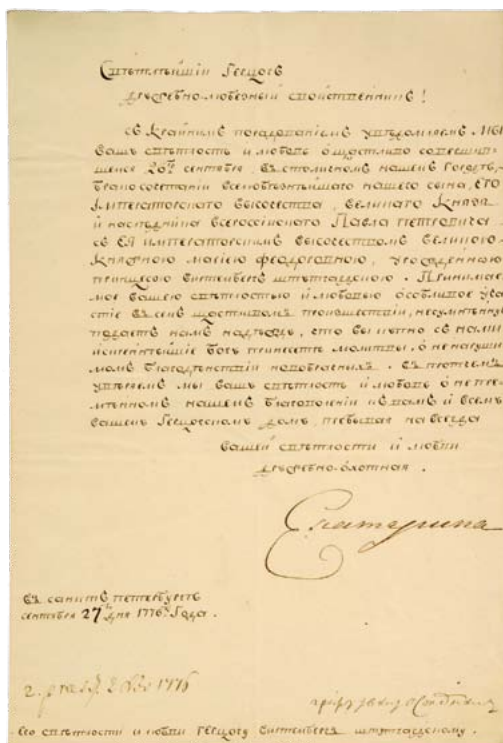 Свѣтлѣйшій Герцогъ
дружебно-любезный свойственникъ!
съ крайнимъ порадованіемъ увѣдомляемъ мы
вашу свѣтлость и любовь о щастливо совершив
шемся 20го сентября, въ столичномъ нашемъ городѣ,
бракосочетаніи вселюбезнѣйшаго нашего сына, его
Императорскаго высочества, великаго Князя
и наслѣдника всероссійскаго Павла Петровича
съ ея императорскимъ высочествомъ великою
Княжною Маріею Феодоровною, урожденною
принцессою Виртембергъ штутгардскою. Принимае
мое вашею свѣтностью и любовью особливое уча
стіе въ семъ щастливомъ произшествіи, несумнѣнную
подаетъ намъ надежду, что вы купно съ нами
богу принесетъ молитвы, о ненаруши
момъ благоденствіи новобрачныхъ. въ протчемъ
увѣряемъ мы вашу свѣтлость и любовь о непре
мѣнномъ нашемъ благоволеніи къ вамъ и всему
вашему Герцогскому дому, пребывая навсегда
вашей свѣтлости и любви
дружебно-охотная.
Екатерина
въ санктъ петербургѣ
сентября 27 дня 1776 года.
1776
его свѣтлости и любви герцогу Виртембергъ штутгардскому.